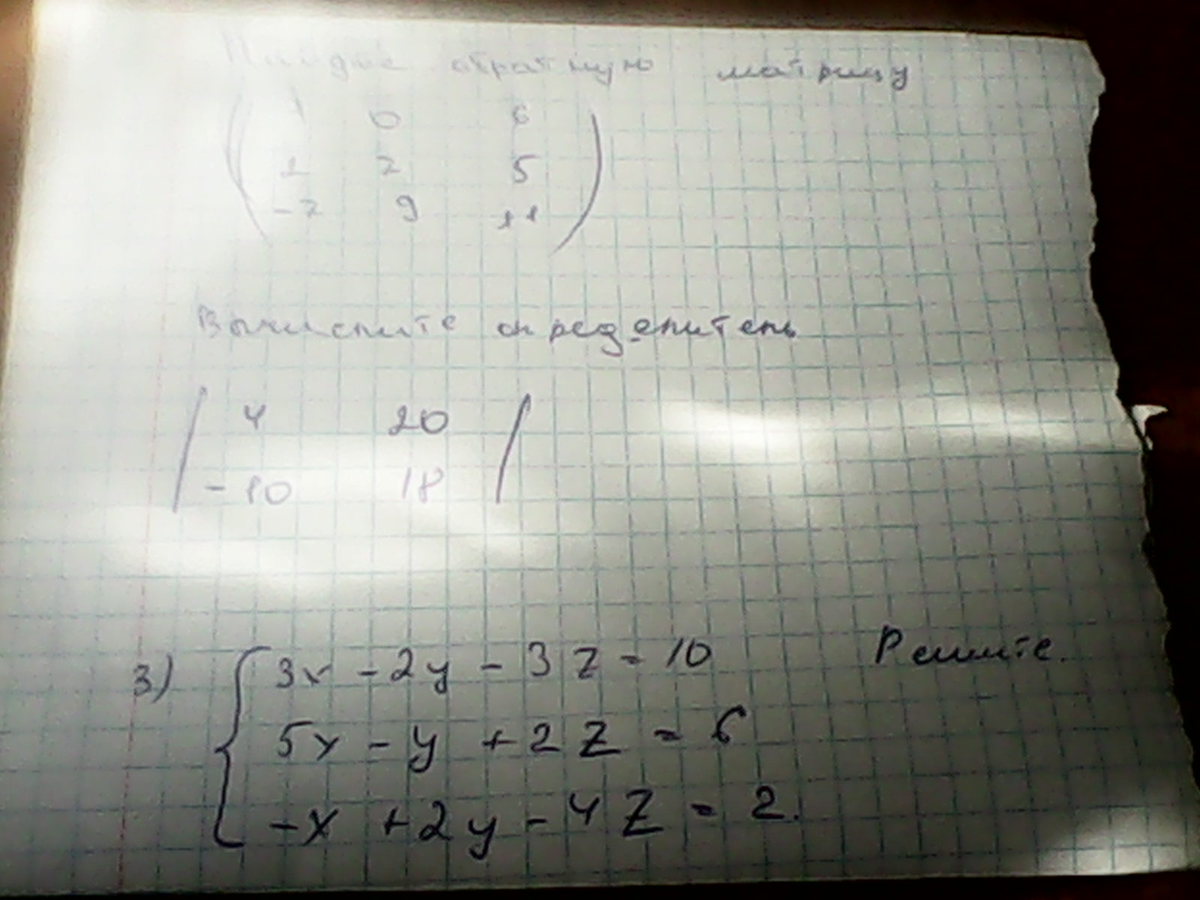 Найдите обратную матрицу
1 0 6
1 2 5
-7 9 11
Вычислите определитель
4 20
-10 18
3) 3x - 2y - 3z = 10 Решите.
5x - y + 2z = 6
-x + 2y - 4z = 2.